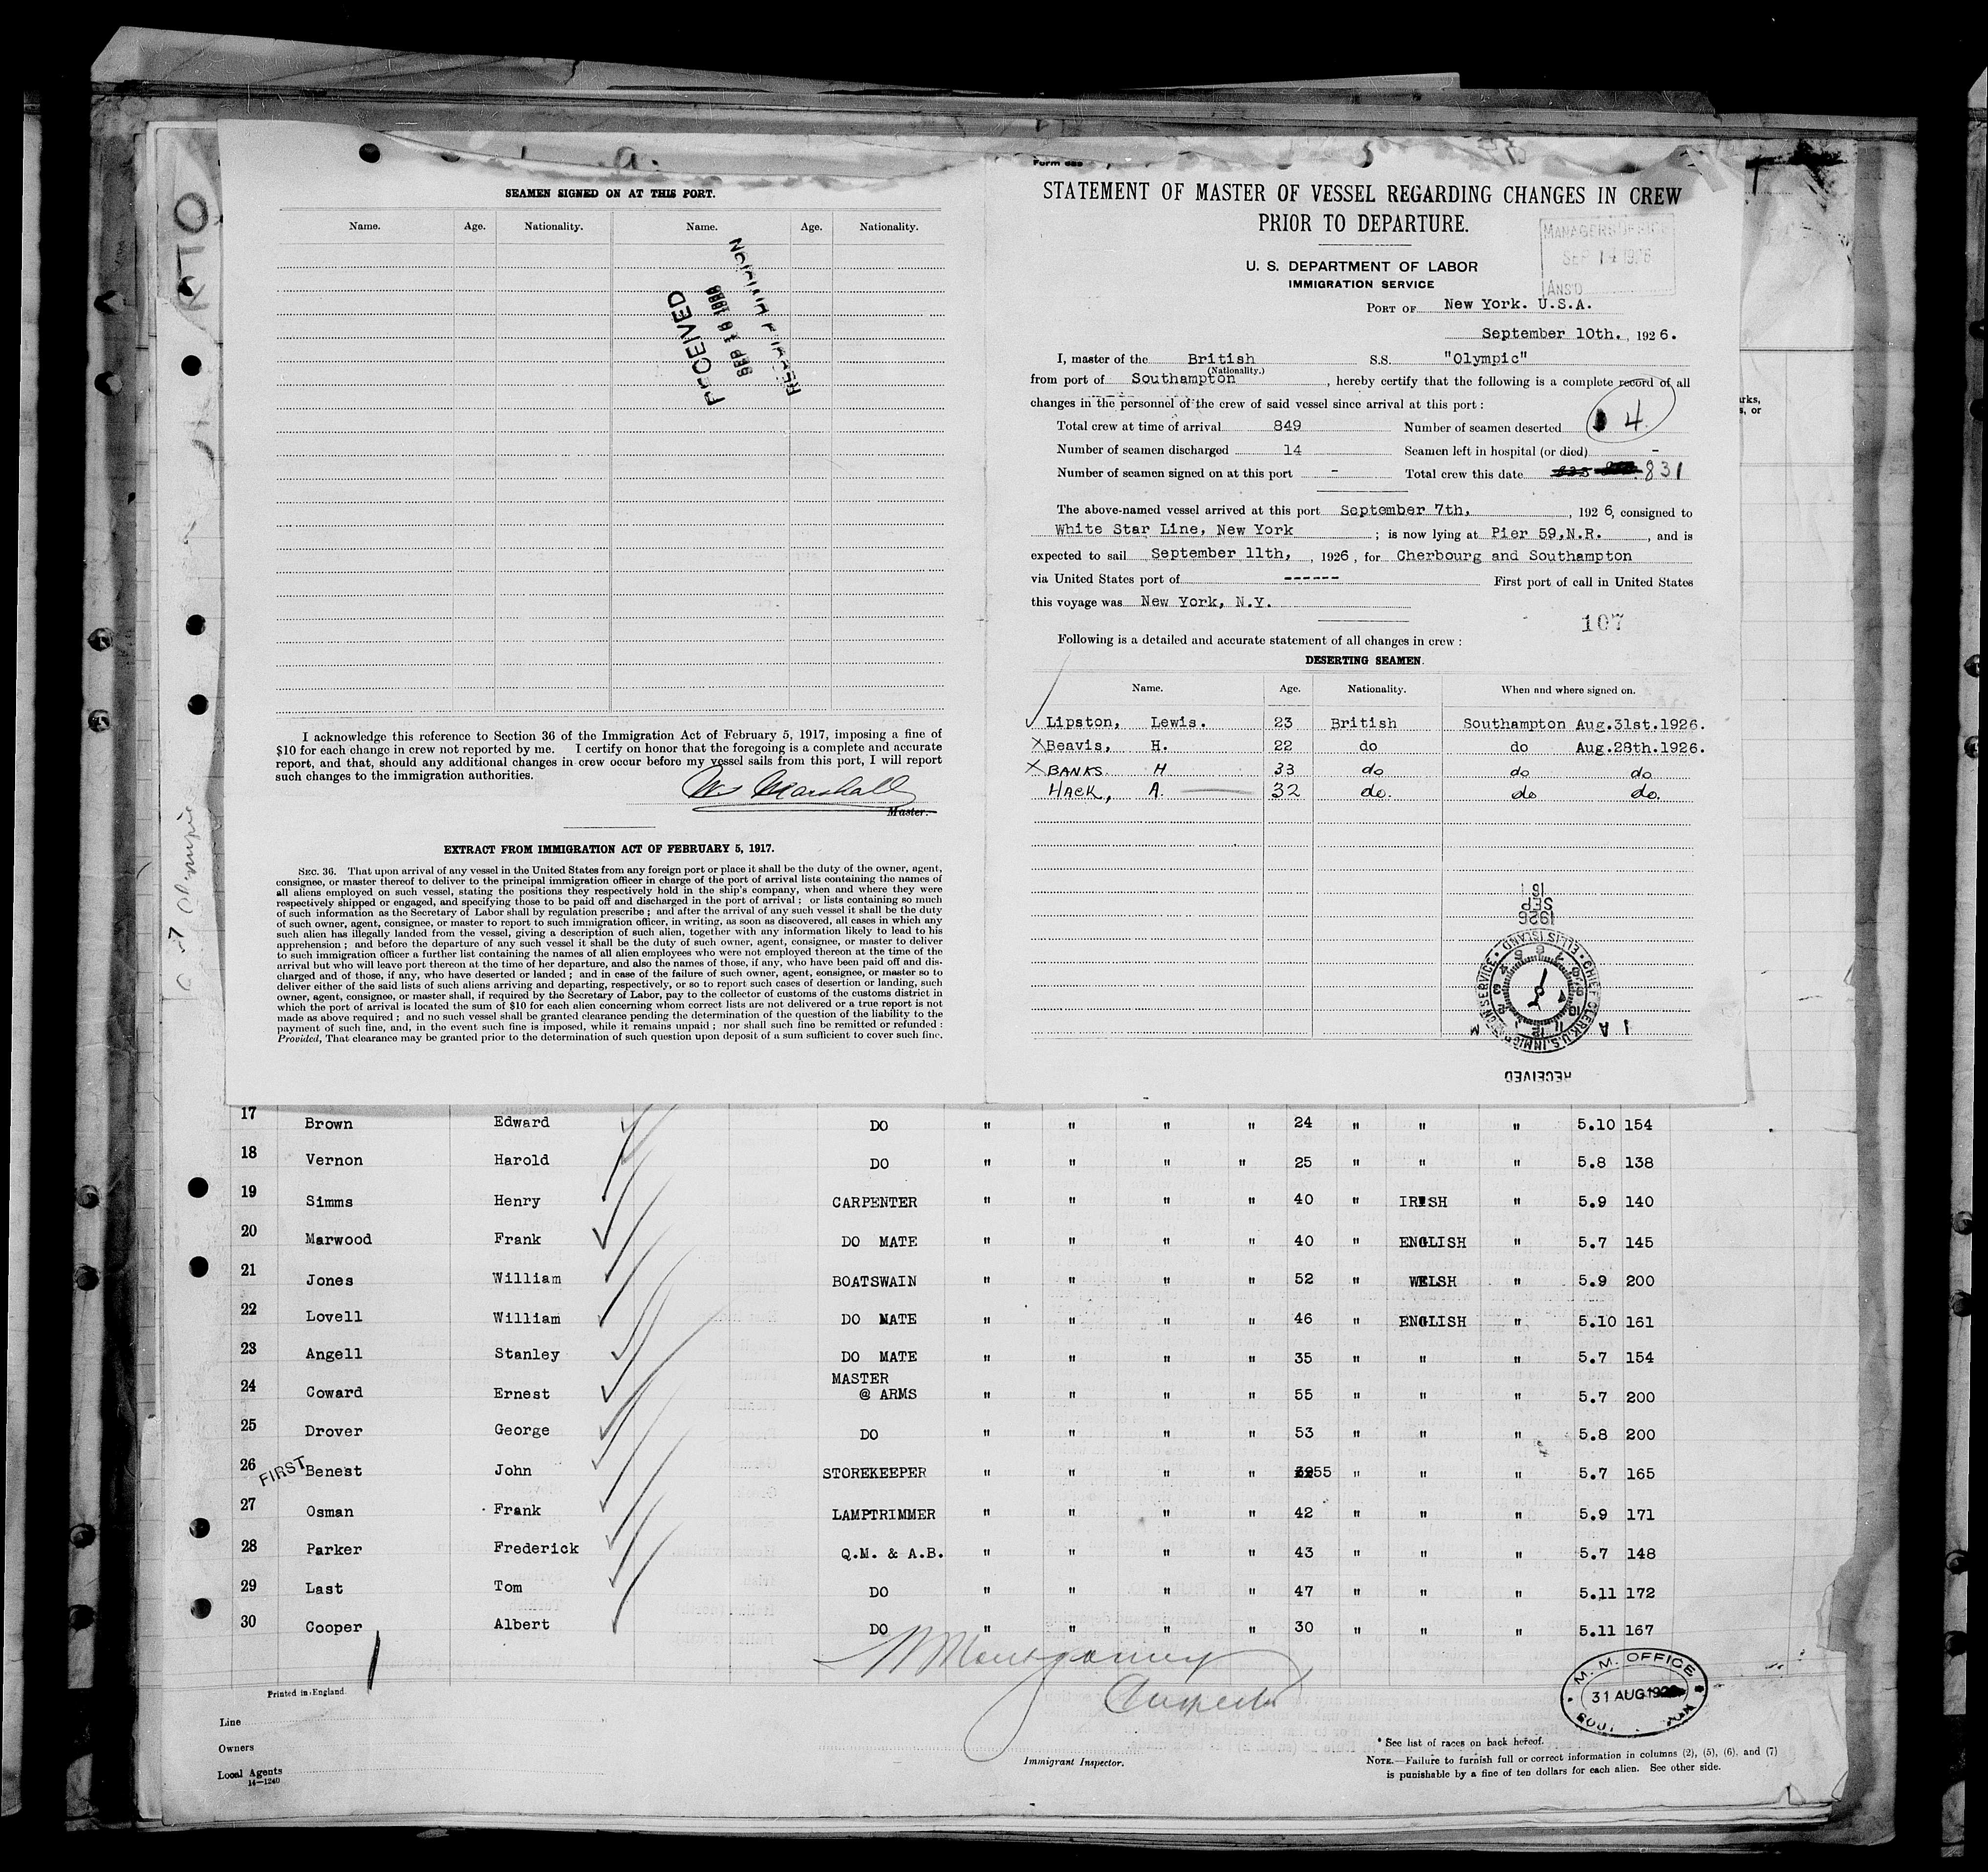 SEAMEN SIGNED ON AT THIS PORT.
Name. Age. Nationality. Name. Age. Nationality.
RECEIVED
I acknowledge this reference to Section 36 of the Immigration Act of February 5, 1917, imposing a fine of
$10 for each change in crew not reported by me. I certify on honor that the foregoing is a complete and accurate
report, and that, should any additional changes in crew occur before my vessel sails from this port, I will report
such changes to the immigration authorities.
W. Marshall
Master.
EXTRACT FROM IMMIGRATION ACT OF FEBRUARY 5, 1917.
SEC. 36. That upon arrival of any vessel in the United States from any foreign port or place it shall be the duty of the owner, agent,
consignee, or master thereof to deliver to the principal immigration officer in charge of the port of arrival lists containing the names of
all aliens employed on such vessel, stating the positions they respectively hold in the ship's company, when and where they were
respectively shipped or engaged, and specifying those to be paid off and discharged in the port of arrival; or lists containing so much
of such information as the Secretary of Labor shall by regulation prescribe; and after the arrival of any such vessel it shall be the duty
of such owner, agent, consignee, or master to report to such immigration officer, in writing, as soon as discovered, all cases in which any
such alien has illegally landed from the vessel, giving a description of such alien, together with any information likely to lead to his
apprehension; and before the departure of any such vessel it shall be the duty of such owner, agent, consignee, or master to deliver
to such immigration officer a further list containing the names of all alien employees who were not employed thereon at the time of the
arrival but who will leave port thereon at the time of her departure, and also the names of those, if any, who have been paid off and dis-
charged and of those, if any, who have deserted or landed; and in case of the failure of such owner, agent, consignee, or master so to
deliver either of the said lists of such aliens arriving and departing, respectively, or so to report such cases of desertion or landing, such
owner, agent, consignee, or master shall, if required by the Secretary of Labor, pay to the collector of customs of the customs district in
which the port of arrival is located the sum of $10 for each alien concerning whom correct lists are not delivered or a true report is not
made as above required; and no such vessel shall be granted clearance pending the determination of the question of the liability to the
payment of such fine, and, in the event such fine is imposed, while it remains unpaid; nor shall such fine be remitted or refunded:
Provided, That clearance may be granted prior to the determination of such question upon deposit of a sum sufficient to cover such fine.
Form 689
STATEMENT OF MASTER OF VESSEL REGARDING CHANGES IN CREW
PRIOR TO DEPARTURE.
MANAGERS OFFICE
SEP 14 1926
ANS'D
U. S. DEPARTMENT OF LABOR
IMMIGRATION SERVICE
PORT OF New York. U.S.A.
September 10th., 1926.
I, master of the British S.S. "Olympic"
(Nationality.)
from port of Southampton, hereby certify that the following is a complete record of all
changes in the personnel of the crew of said vessel since arrival at this port:
Total crew at time of arrival 849 Number of seamen deserted 4
Number of seamen discharged 14 Seamen left in hospital (or died) -
Number of seamen signed on at this port - Total crew this date 831
The above-named vessel arrived at this port September 7th, 1926, consigned to
White Star Line, New York; is now lying at Pier 59,N.R., and is
expected to sail September 11th, 1926, for Cherbourg and Southampton
via United States port of ------ First port of call in United States
this voyage was New York, N.Y.
107
Following is a detailed and accurate statement of all changes in crew:
DESERTING SEAMEN.
Name. Age. Nationality. When and where signed on.
Lipston, Lewis. 23 British Southampton Aug.31st.1926.
X Beavis, H. 22 do do Aug.28th.1926.
X BANKS H 33 do do do
Hack, A. 32 do. do do.
16
SEP
1926
CHIEF CLERK U.S. IMMIGRATION SERVICE ELLIS ISLAND
RECEIVED
17 Brown Edward DO " " " " 24 " " " 5.10 154
18 Vernon Harold DO " " " " 25 " " " 5.8 138
19 Simms Henry CARPENTER " " " " 40 " IRISH " 5.9 140
20 Marwood Frank DO MATE " " " " 40 " ENGLISH " 5.7 145
21 Jones William BOATSWAIN " " " " 52 " WELSH " 5.9 200
22 Lovell William DO MATE " " " " 46 " ENGLISH " 5.10 161
23 Angell Stanley DO MATE " " " " 35 " " " 5.7 154
24 Coward Ernest MASTER @ ARMS " " " " 55 " " " 5.7 200
25 Drover George DO " " " " 53 " " " 5.8 200
26 FIRST Benest John STOREKEEPER " " " " 55 " " " 5.7 165
27 Osman Frank LAMPTRIMMER " " " " 42 " " " 5.9 171
28 Parker Frederick Q.M. & A.B. " " " " 43 " " " 5.7 148
29 Last Tom DO " " " " 47 " " " 5.11 172
30 Cooper Albert DO " " " " 30 " " " 5.11 167
Montgomery
Printed in England.
Line
Owners
Local Agents
14-1240
Immigrant Inspector.
M. M. OFFICE
31 AUG 1926
* See list of races on back hereof.
NOTE.—Failure to furnish full or correct information in columns (2), (5), (6), and (7)
is punishable by a fine of ten dollars for each alien. See other side.